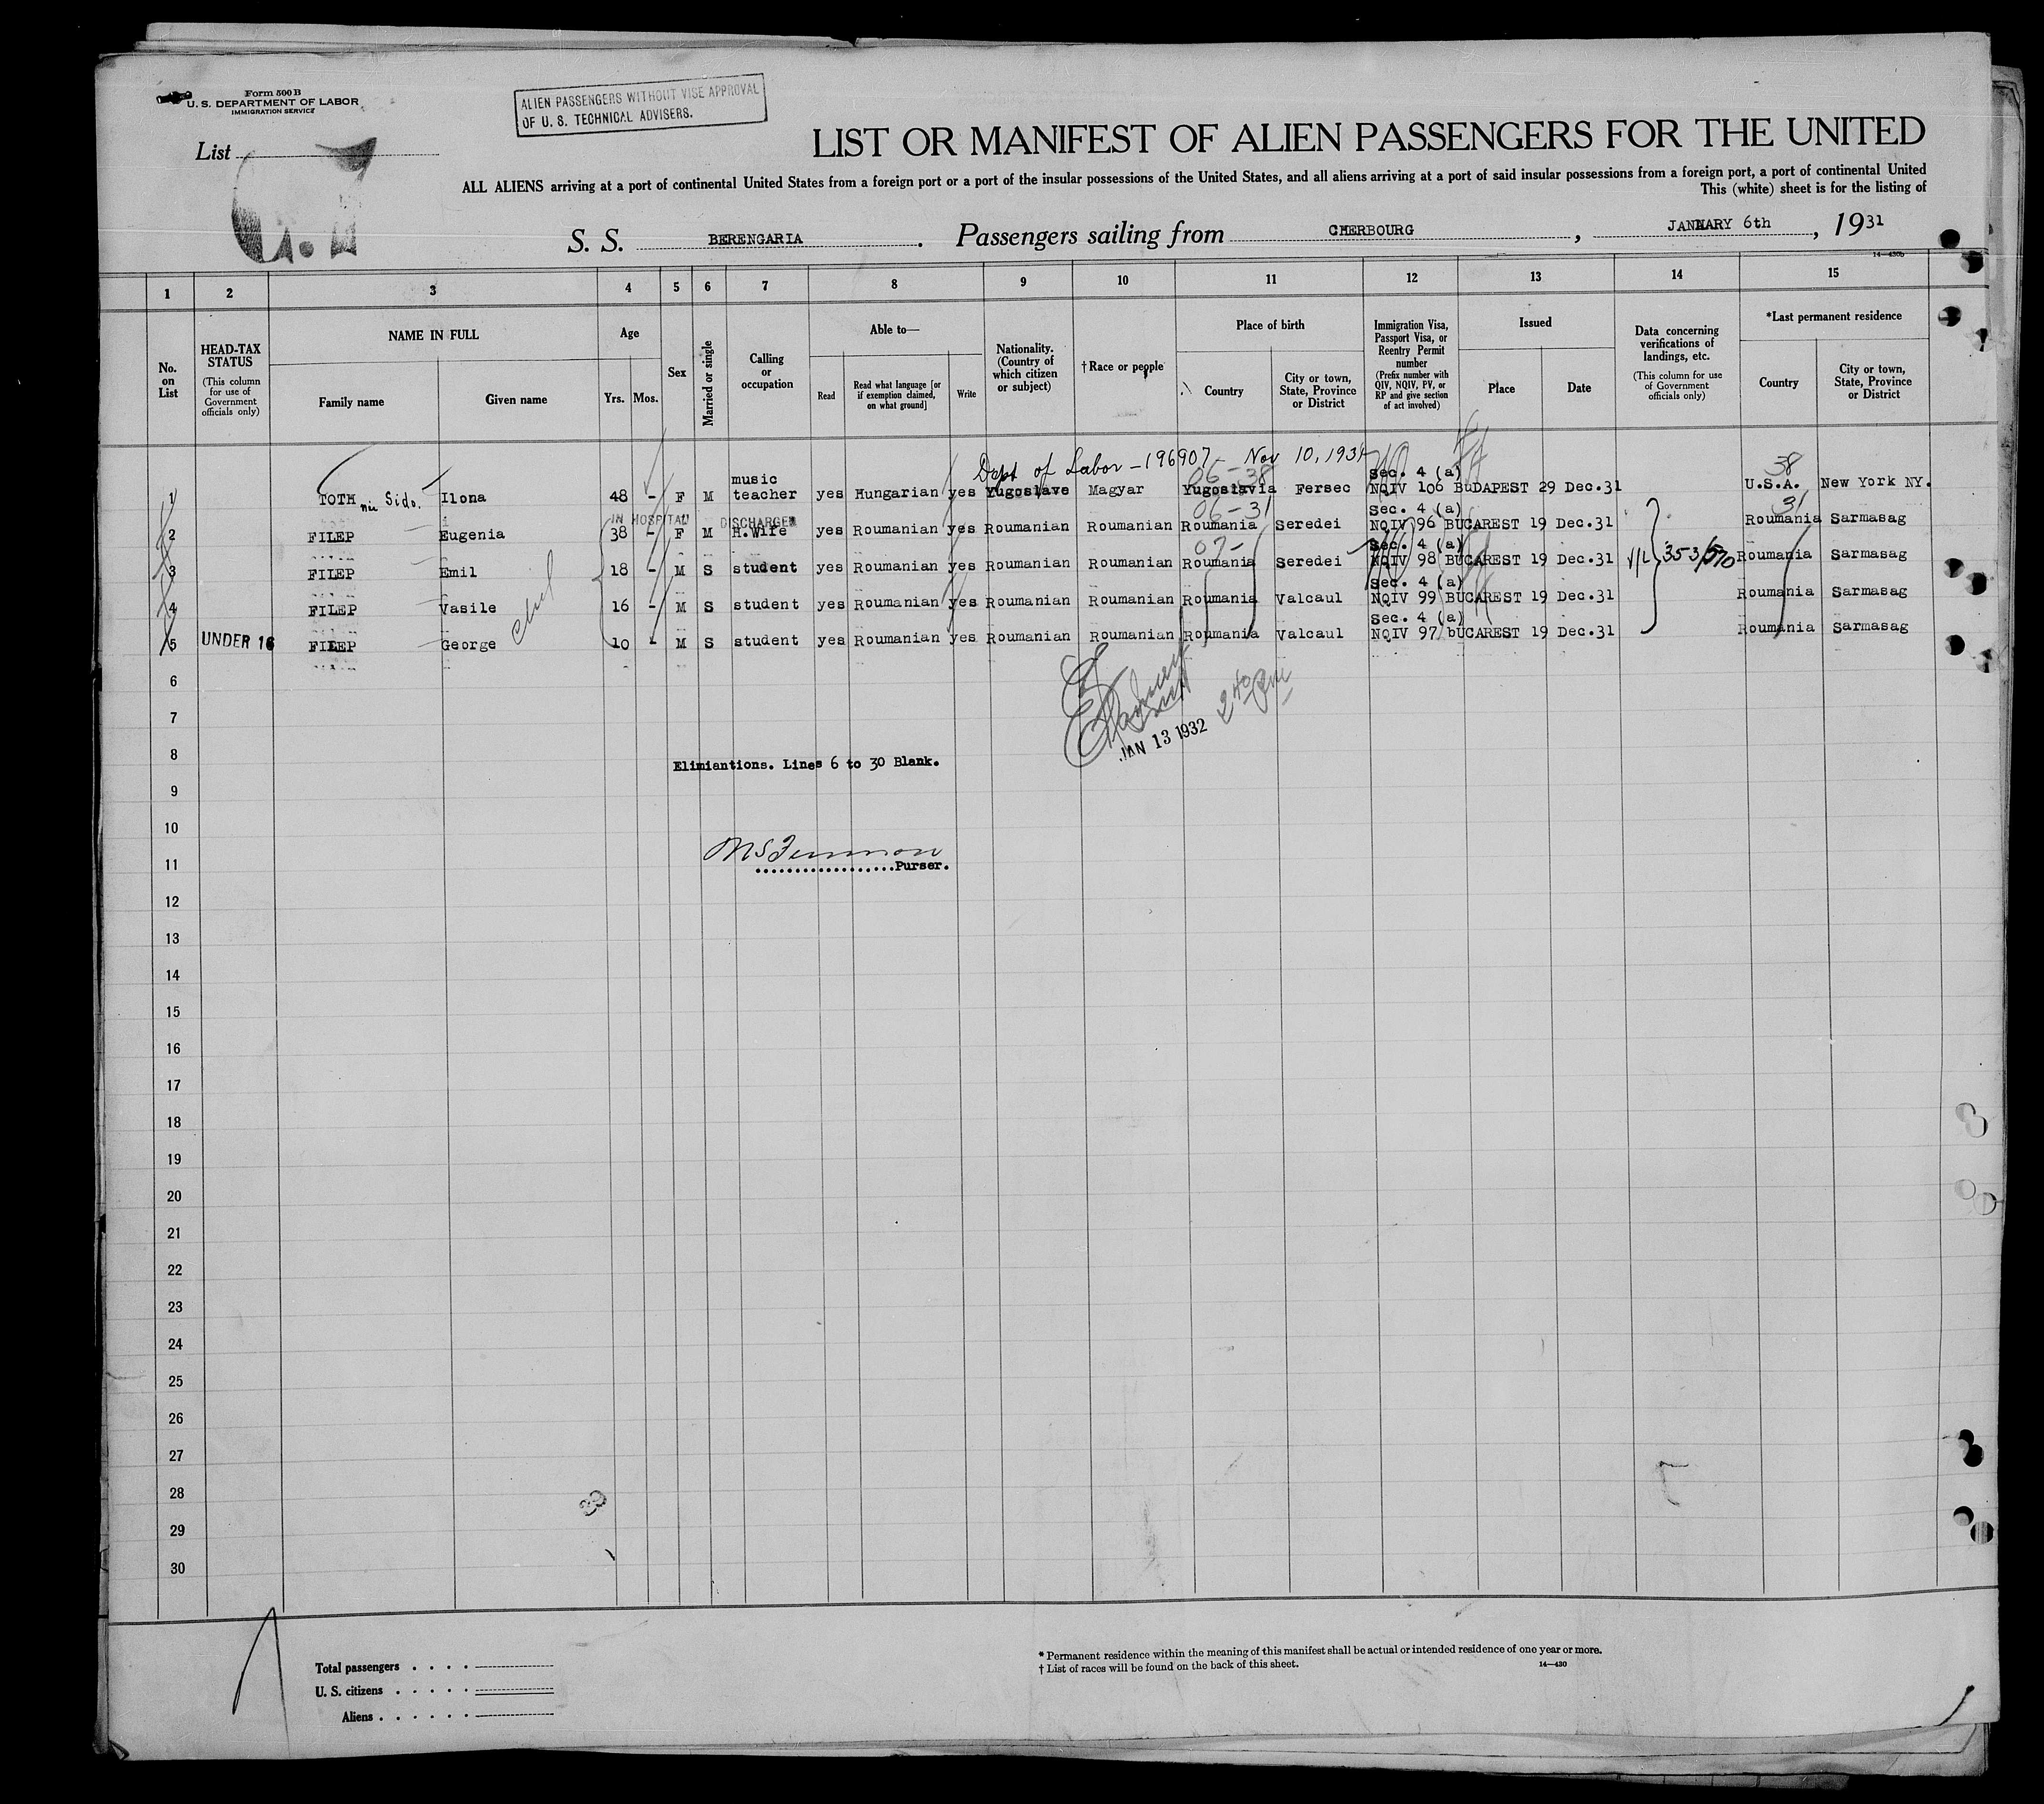 Form 500 B
U. S. DEPARTMENT OF LABOR
IMMIGRATION SERVICE
ALIEN PASSENGERS WITHOUT VISE APPROVAL
OF U. S. TECHNICAL ADVISERS.
List
LIST OR MANIFEST OF ALIEN PASSENGERS FOR THE UNITED
ALL ALIENS arriving at a port of continental United States from a foreign port or a port of the insular possessions of the United States, and all aliens arriving at a port of said insular possessions from a foreign port, a port of continental United
This (white) sheet is for the listing of
S. S. BERENGARIA . Passengers sailing from CHERBOURG , JANUARY 6th , 1931
14—430b
1 2 3 4 5 6 7 8 9 10 11 12 13 14 15
No. on List
HEAD-TAX STATUS
(This column for use of Government officials only)
NAME IN FULL
Family name
Given name
Age
Yrs. Mos.
Sex
Married or single
Calling or occupation
Able to—
Read
Read what language [or if exemption claimed, on what ground]
Write
Nationality. (Country of which citizen or subject)
† Race or people
Place of birth
Country
City or town, State, Province or District
Immigration Visa, Passport Visa, or Reentry Permit number
(Prefix number with QIV, NQIV, PV, or RP and give section of act involved)
Issued
Place
Date
Data concerning verifications of landings, etc.
(This column for use of Government officials only)
*Last permanent residence
Country
City or town, State, Province or District
Dept of Labor - 196907 - Nov 10, 1931
06-38 Sec. 4 (a) 38
1 TOTH née Sido. Ilona 48 - F M music teacher yes Hungarian yes Yugoslave Magyar Yugoslavia Fersec NQIV 106 BUDAPEST 29 Dec.31 U.S.A. New York NY.
IN HOSPITAL DISCHARGED 06-31 Sec. 4 (a) 31
2 FILEP Eugenia 38 - F M H.Wife yes Roumanian yes Roumanian Roumanian Roumania Seredei NQIV 96 BUCAREST 19 Dec.31 Roumania Sarmasag
07- Sec. 4 (a)
3 FILEP Emil 18 - M S student yes Roumanian yes Roumanian Roumanian Roumania Seredei NQIV 98 BUCAREST 19 Dec.31 V/L 353/570 Roumania Sarmasag
Sec. 4 (a)
4 FILEP Vasile 16 - M S student yes Roumanian yes Roumanian Roumanian Roumania Valcaul NQIV 99 BUCAREST 19 Dec.31 Roumania Sarmasag
Sec. 4 (a)
5 UNDER 16 FILEP George 10 - M S student yes Roumanian yes Roumanian Roumanian Roumania Valcaul NQIV 97 bUCAREST 19 Dec.31 Roumania Sarmasag
6
7
JAN 13 1932 2 40 pm
8
Elimiantions. Lines 6 to 30 Blank.
9
10
11
Purser.
12
13
14
15
16
17
18
19
20
21
22
23
24
25
26
27
28
29
30
Total passengers
U. S. citizens
Aliens
* Permanent residence within the meaning of this manifest shall be actual or intended residence of one year or more.
† List of races will be found on the back of this sheet.
14—430